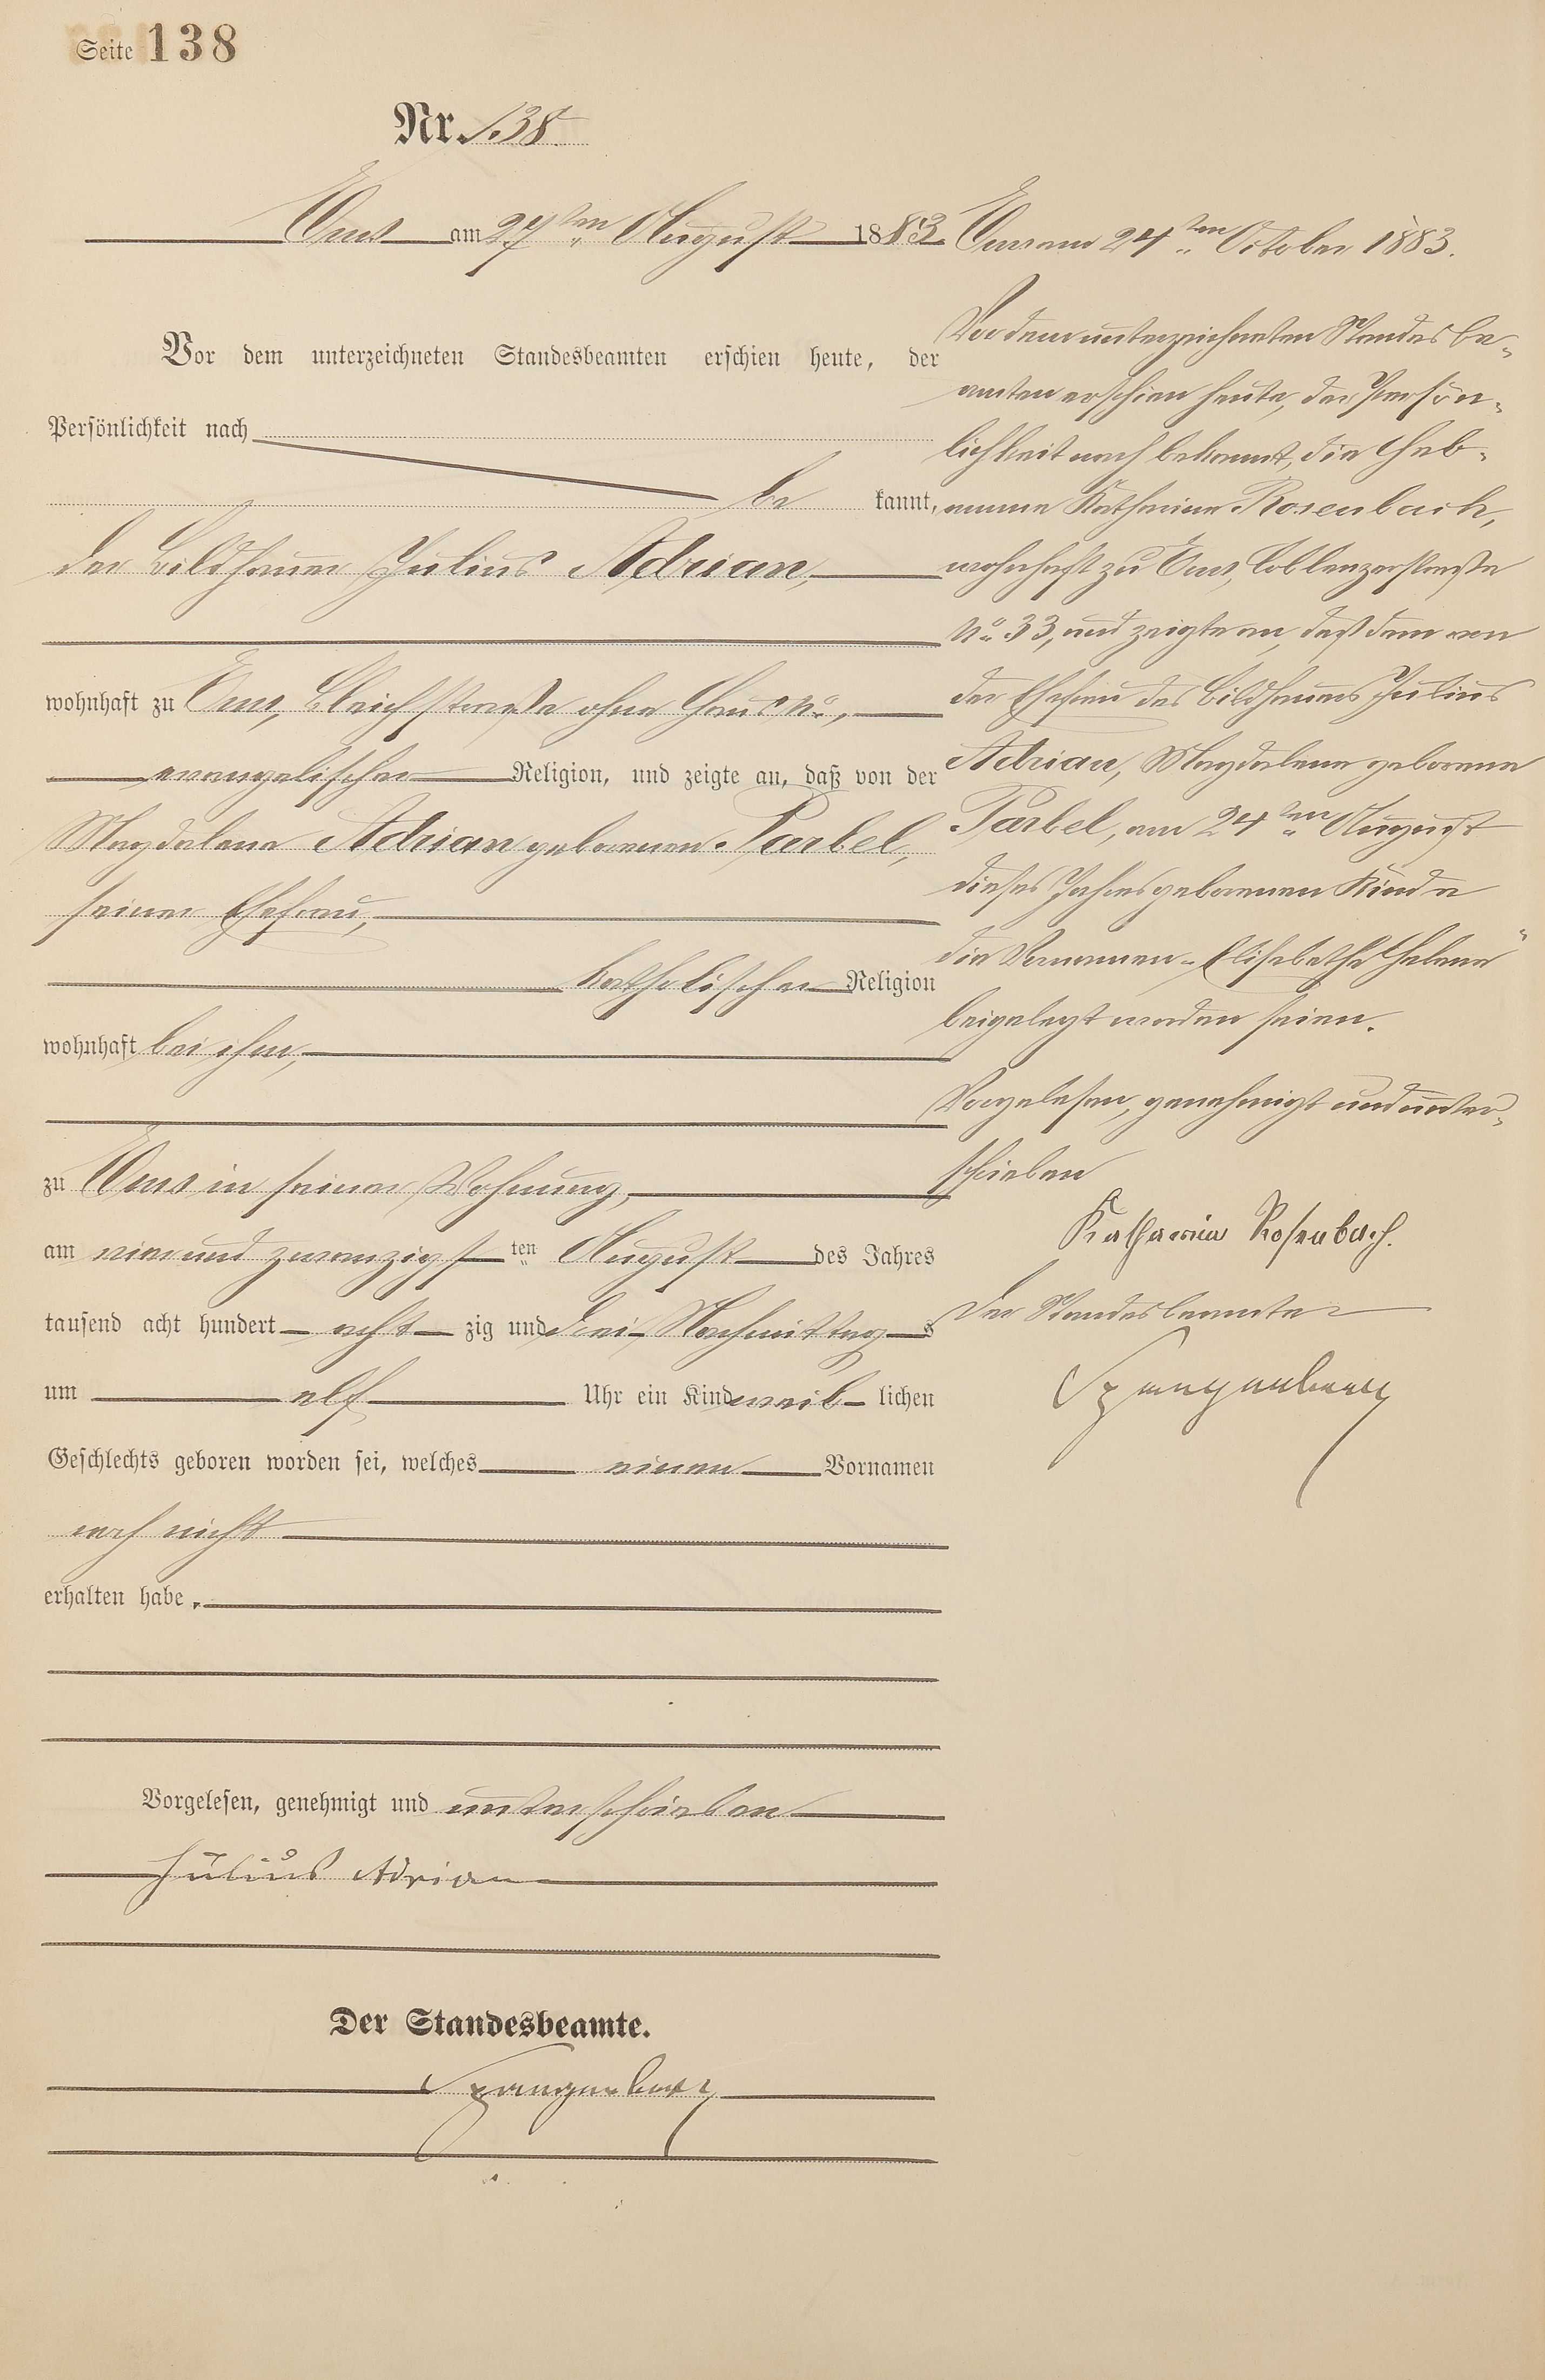 Seite 138
Nr. 138.
Ems am 27ten August 1883.
Vor dem unterzeichneten Standesbeamten erschien heute, der
Persönlichkeit nach
be kannt,
der Bildhauer Julius Adrian,
wohnhaft zu Ems, Bleichstraße ohne Haus No,
evangelischer Religion, und zeigte an, daß von der
Magdalena Adrian geborenen Parbel,
seiner Ehefrau,
katholischer Religion
wohnhaft bei ihm,
zu Ems in seiner Wohnung,
am vierundzwanzigsten August des Jahres
tausend acht hundert acht zig und drei Nachmittags
um elf Uhr ein Kind weiblichen
Geschlechts geboren worden sei, welches einen Vornamen
noch nicht
erhalten habe.
Vorgelesen, genehmigt und unterschrieben
Julius Adrian
Der Standesbeamte.
Spangenberg
Ems am 24ten October 1883.
Vor dem unterzeichneten Standesbe-
amten erschien heute, der Persön-
lichkeit nach bekannt, die Heb-
amme Katharina Rosenbach,
wohnhaft zu Ems, Coblenzerstraße
No 33, und zeigte an, daß dem von
der Ehefrau des Bildhauers Julius
Adrian, Magdalena geborene
Parbel, am 24ten August
dieses Jahres geborenen Kinde
die Vornamen "Elisabetha Helena"
beigelegt worden seien.
Vorgelesen, genehmigt und unter-
schrieben
Katharina Rosenbach.
Der Standesbeamte
Spangenberg